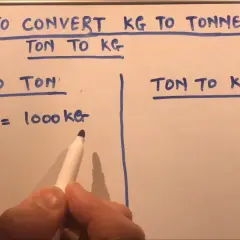 TO CONVERT KG TO TONNE
TON TO KG
TON
TON TO K
= 1000 KG